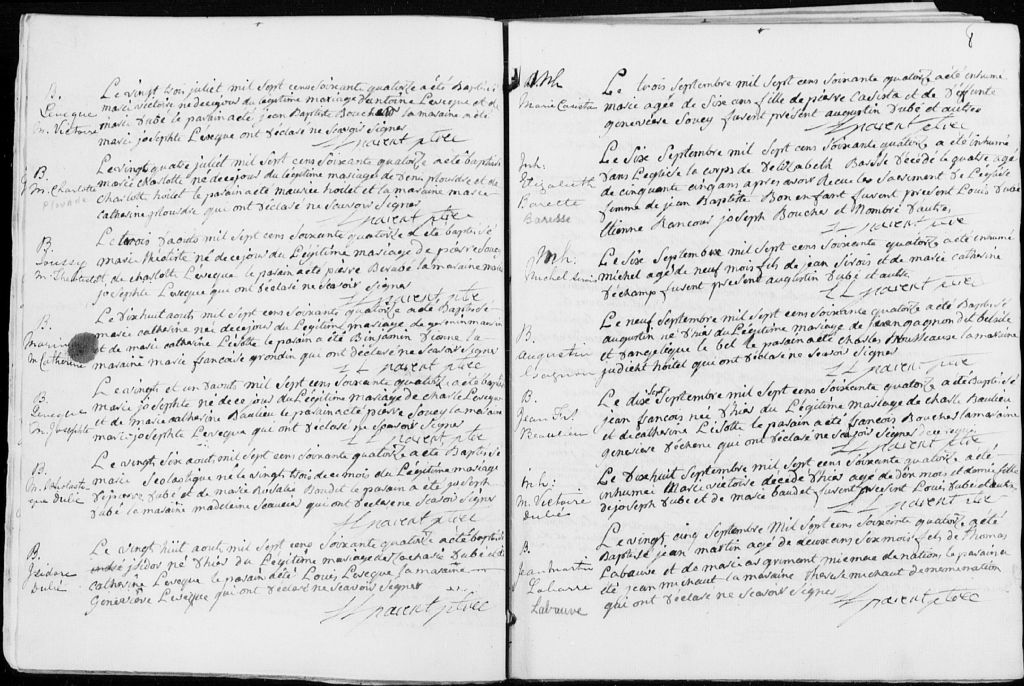 B.
Leveque
m. Victoire
Le vingt trois juliet mil sept cens soixante quatorze a été Baptisé
marie victoire né de ce jour du légitime mariage d'antoine Levecque et de
marie Dubé le parain a été jean Baptiste Bouchere la maraine a été
marie josephte Levecque qui ont déclaré ne scavoir signer
JJ parent ptre
B.
M. Charlotte
Plourde
Le vingt quatre juliet mil sept cens soixante quatorze a été baptisé
marie charlotte né de ce jour du légitime mariage de Deni plourdre et de
Charlotte hoitel le parain a été maurice hoitel et la maraine marie
catherine plourdre qui ont déclaré ne scavoir signer
JJ parent ptre
B.
Soussy
m. Theotiste
Le trois d'aouts mil sept cens soixante quatorze a été baptisé
marie théotiste né de ce jour du Légitime mariage de pierre Soucy
et de charlotte Levecque le parain a été pierre Berubé la maraine marie
josephte Levecque qui ont déclaré ne scavoir signer
JJ parent ptre
B.
m. Catherine
Le Dixhuit aouts mil sept cens soixante quatorze a été Baptisé
marie catherine née de ce jour du Légitime mariage de germin
et de marie catherine Lisotte le parain a été Binjamin Dionne la
maraine marie francoise grondin qui ont déclaré ne scavoir signer
JJ parent ptre
B.
Leveque
M. Josephte
Le vingt et un D'aouts mil sept cens soixante quatorze a été baptisé
marie josephte né de ce jour du Légitime mariage de charle Levecque
et de marie catherine Baulieu le parain a été pierre Soucy la maraine
marie josephte Levecque qui ont déclaré ne scavoir signer
JJ parent ptre
B.
M. Scholasti
que Dubé
Le vingt six aout mil sept cens soixante quatorze a été Baptisé
marie Scolastique né le vingt trois de ce mois du Légitime mariage
de joseph Dubé et de marie Rosalie Boudet le parain a été joseph
Dubé la maraine madeleine qui ont déclaré ne scavoir signer
JJ parent ptre
B.
Isidore
Dubé
Le vingt huit aout mil sept cens soixante quatorze a été baptisé
isidor né d'hier du Légitime mariage de Zacharie Dubé et de
Catherine Levecque le parain a été Louis Levecque la maraine
Geneviève Levecque qui ont déclaré ne scavoir signer
JJ parent ptre
8
Inh
Marie
Le trois septembre mil sept cens soixante quatorze a été inhumé
marie agée de six ans fille de pierre et de Defunte
geneviève Soucy furent présent augustin Dubé et autres
JJ parent ptre
Inh.
Elizabeth
Barette
Baresse
Le six septembre mil sept cens soixante quatorze a été inhumé
Dans L'eglise la corps de Elizabeth Basse décédé le quatre agé
de cinquante cinq ans apres avoir Recue les sacrement de L'eglise
femme de jean Baptiste Bon enfant furent present Louis Dubé
Etienne Rancour joseph Boucher et nombre d'autres
JJ parent ptre
Inh:
Michel
Le six septembre mil sept cens soixante quatorze a été inhumé
michel agé de neuf mois fils de jean Sirois et de marie catherine
Dechamp furent present augustin Dubé et autre
JJ parent ptre
B.
Augustin
Gagnon
Le neuf septembre mil sept cens soixante quatorze a été Baptisé
augustin né d'hier du Légitime mariage de jean gagnon dit belisle
et d'angelique le bel le parain a été charles Rousseause la maraine
judicht hoitel qui ont déclaré ne scavoir signer
JJ parent ptre
B.
Jean Frs
Beaulieu
Le dixsept septembre mil sept cens soixante quatorze a été Baptisé
jean francois né d'hier du Légitime mariage de charle Baulieu
et de catherine Lisotte le parain a été francois Boucher la maraine
geneviève qui ont déclaré ne scavoir signer
JJ parent ptre
inh:
M. Victoire
Dubé
Le Dixhuit septembre mil sept cens soixante quatorze a été
inhumée Marie victoire décédé d'hier agé de dix mois et domie fille
de joseph Dubé et de marie baudet furent present Louis Dubé et autre
JJ parent ptre
B.
Jean Martin
Labarre
Labauve
Le vingt cinq septembre Mil sept cens soixante quatorze a été
Baptisé jean martin agé de deux ans six mois fils de Thomas
Labauve et de marie micmaue de nation le parain a
été jean michaut la maraine Therese michaut
qui ont déclaré ne scavoir signer
JJ parent ptre